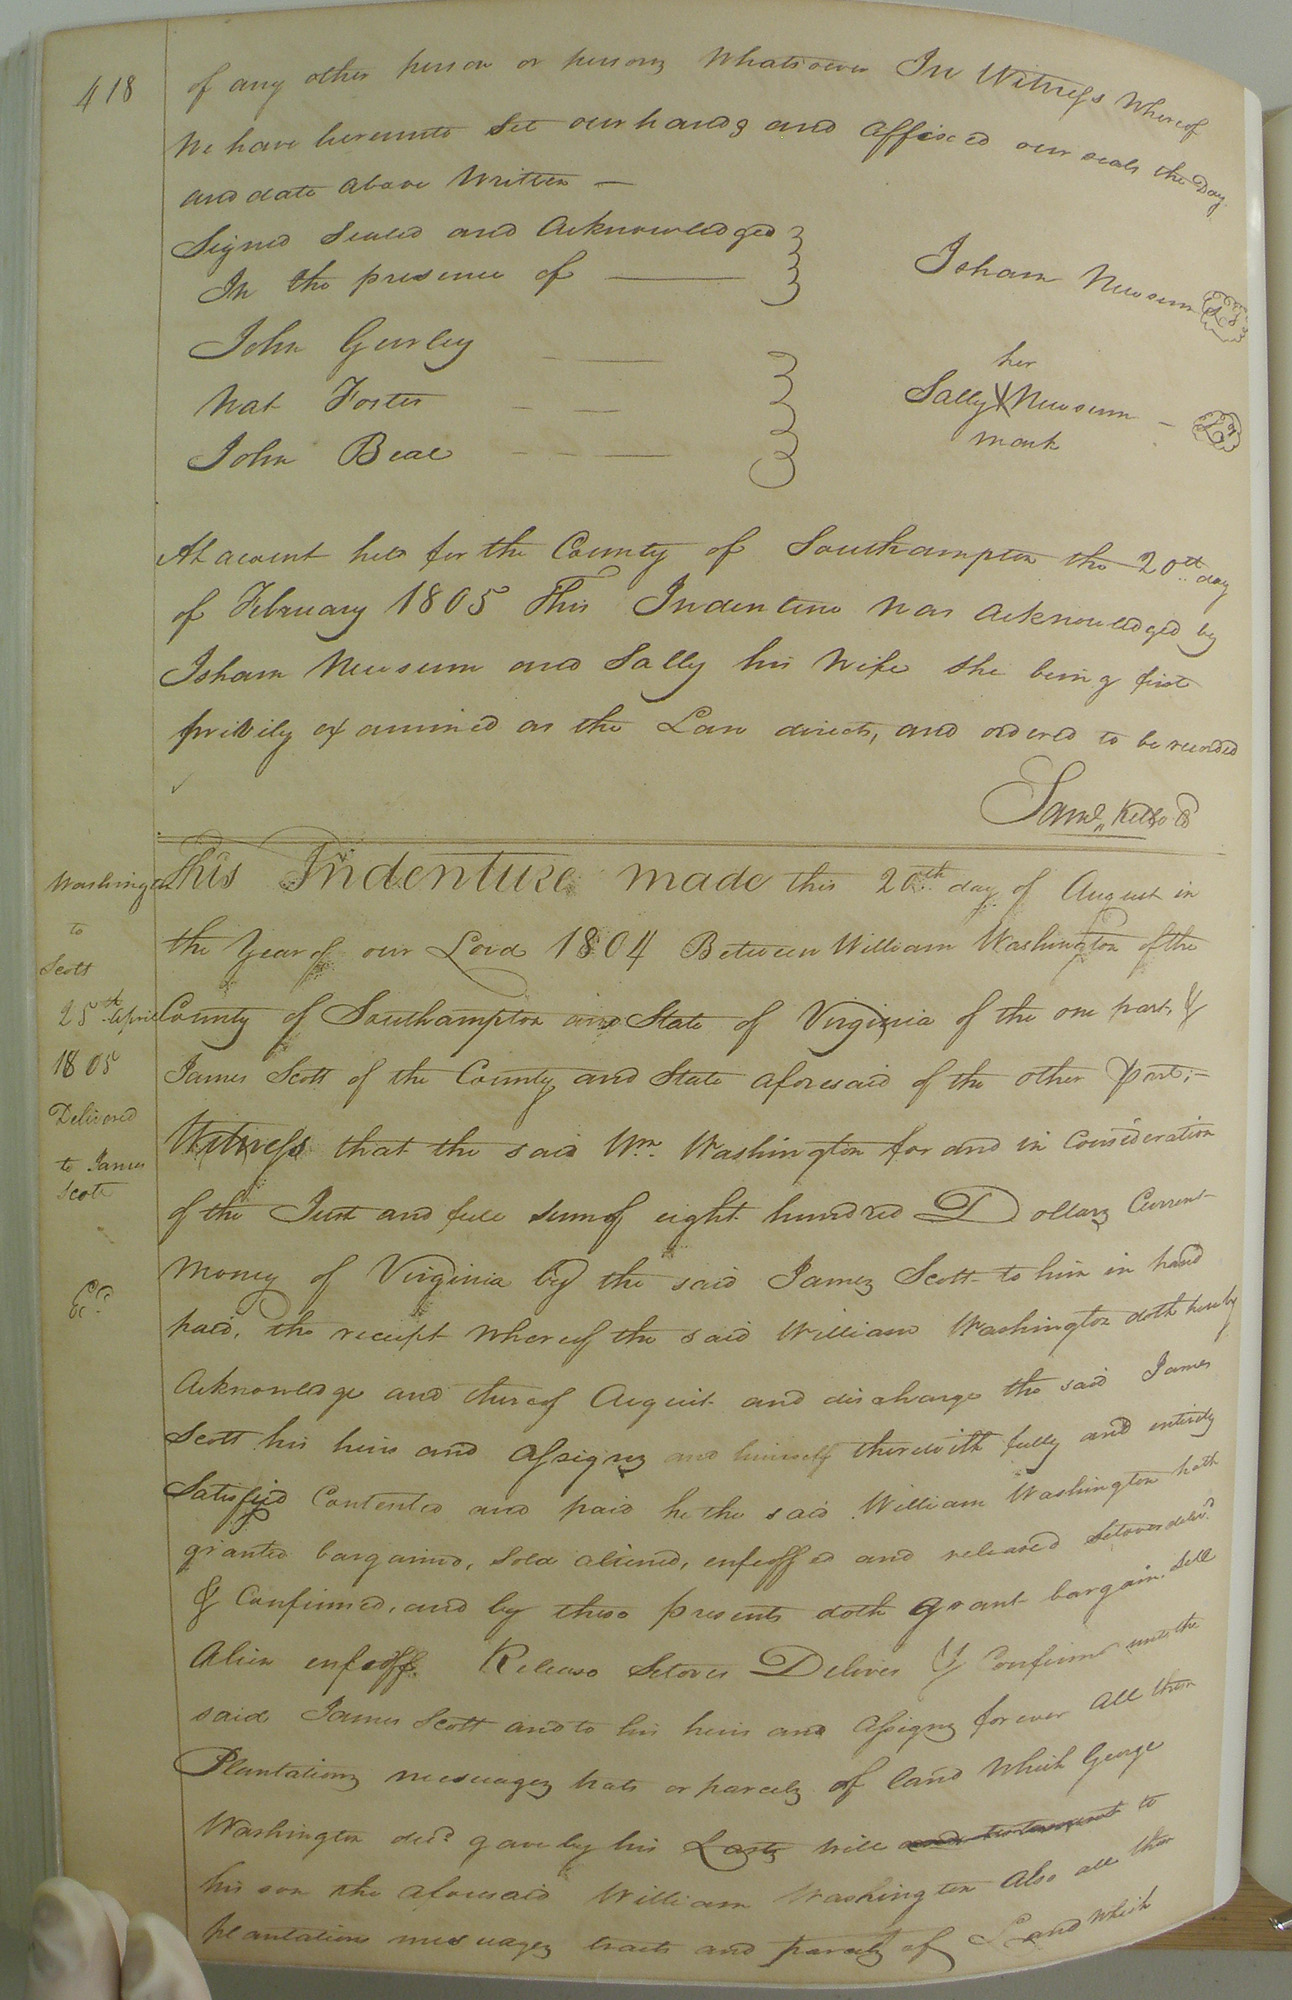 418
of any other person or persons Whatsoever In Witness Whereof
We have hereunto Set our hands and affixed our seals the Day
and date above Written —
Signed Sealed and Acknowledged
In the presence of
Isham Newsum LS
John Gurley
Nat Foster
John Beal
her
Sally X Newsum - LS
mark
At a court held for the County of Southampton the 20th day
of February 1805 This Indenture was acknowledged by
Isham Newsum and Sally his Wife She being first
privily examined as the Law directs, and ordered to be recorded
Saml. Kello
Washing
to
Scott
25th April
1805
Delivered
to James
Scott
Ed
This Indenture made this 20th day of August in
the Year of our Lord 1804 Between William Washington of the
County of Southampton and State of Virginia of the one part, &
James Scott of the County and State aforesaid of the other part;—
Witness that the said Wm. Washington for and in Consideration
of the Just and full sum of eight hundred Dollars Current
Money of Virginia by the said James Scott to him in hand
paid, the receipt whereof the said William Washington doth hereby
Acknowledge and thereof Acquit and discharge the said James
Scott his heirs and Assigns and himself therewith fully and entirely
Satisfied Contented and paid he the said William Washington hath
granted bargained, Sold aliened, enfeoffed and released Setover deliv.d
& Confirmed, and by these presents doth grant bargain Sell
Alien enfeoff Release Setover Deliver & Confirm unto the
said James Scott and to his heirs and Assigns forever All them
Plantations messuages trats or parcels of land Which George
Washington decd. gave by his Last Will and testament to
his son the aforesaid William Washington Also all the
plantations messuages tracts and parcels of Land which